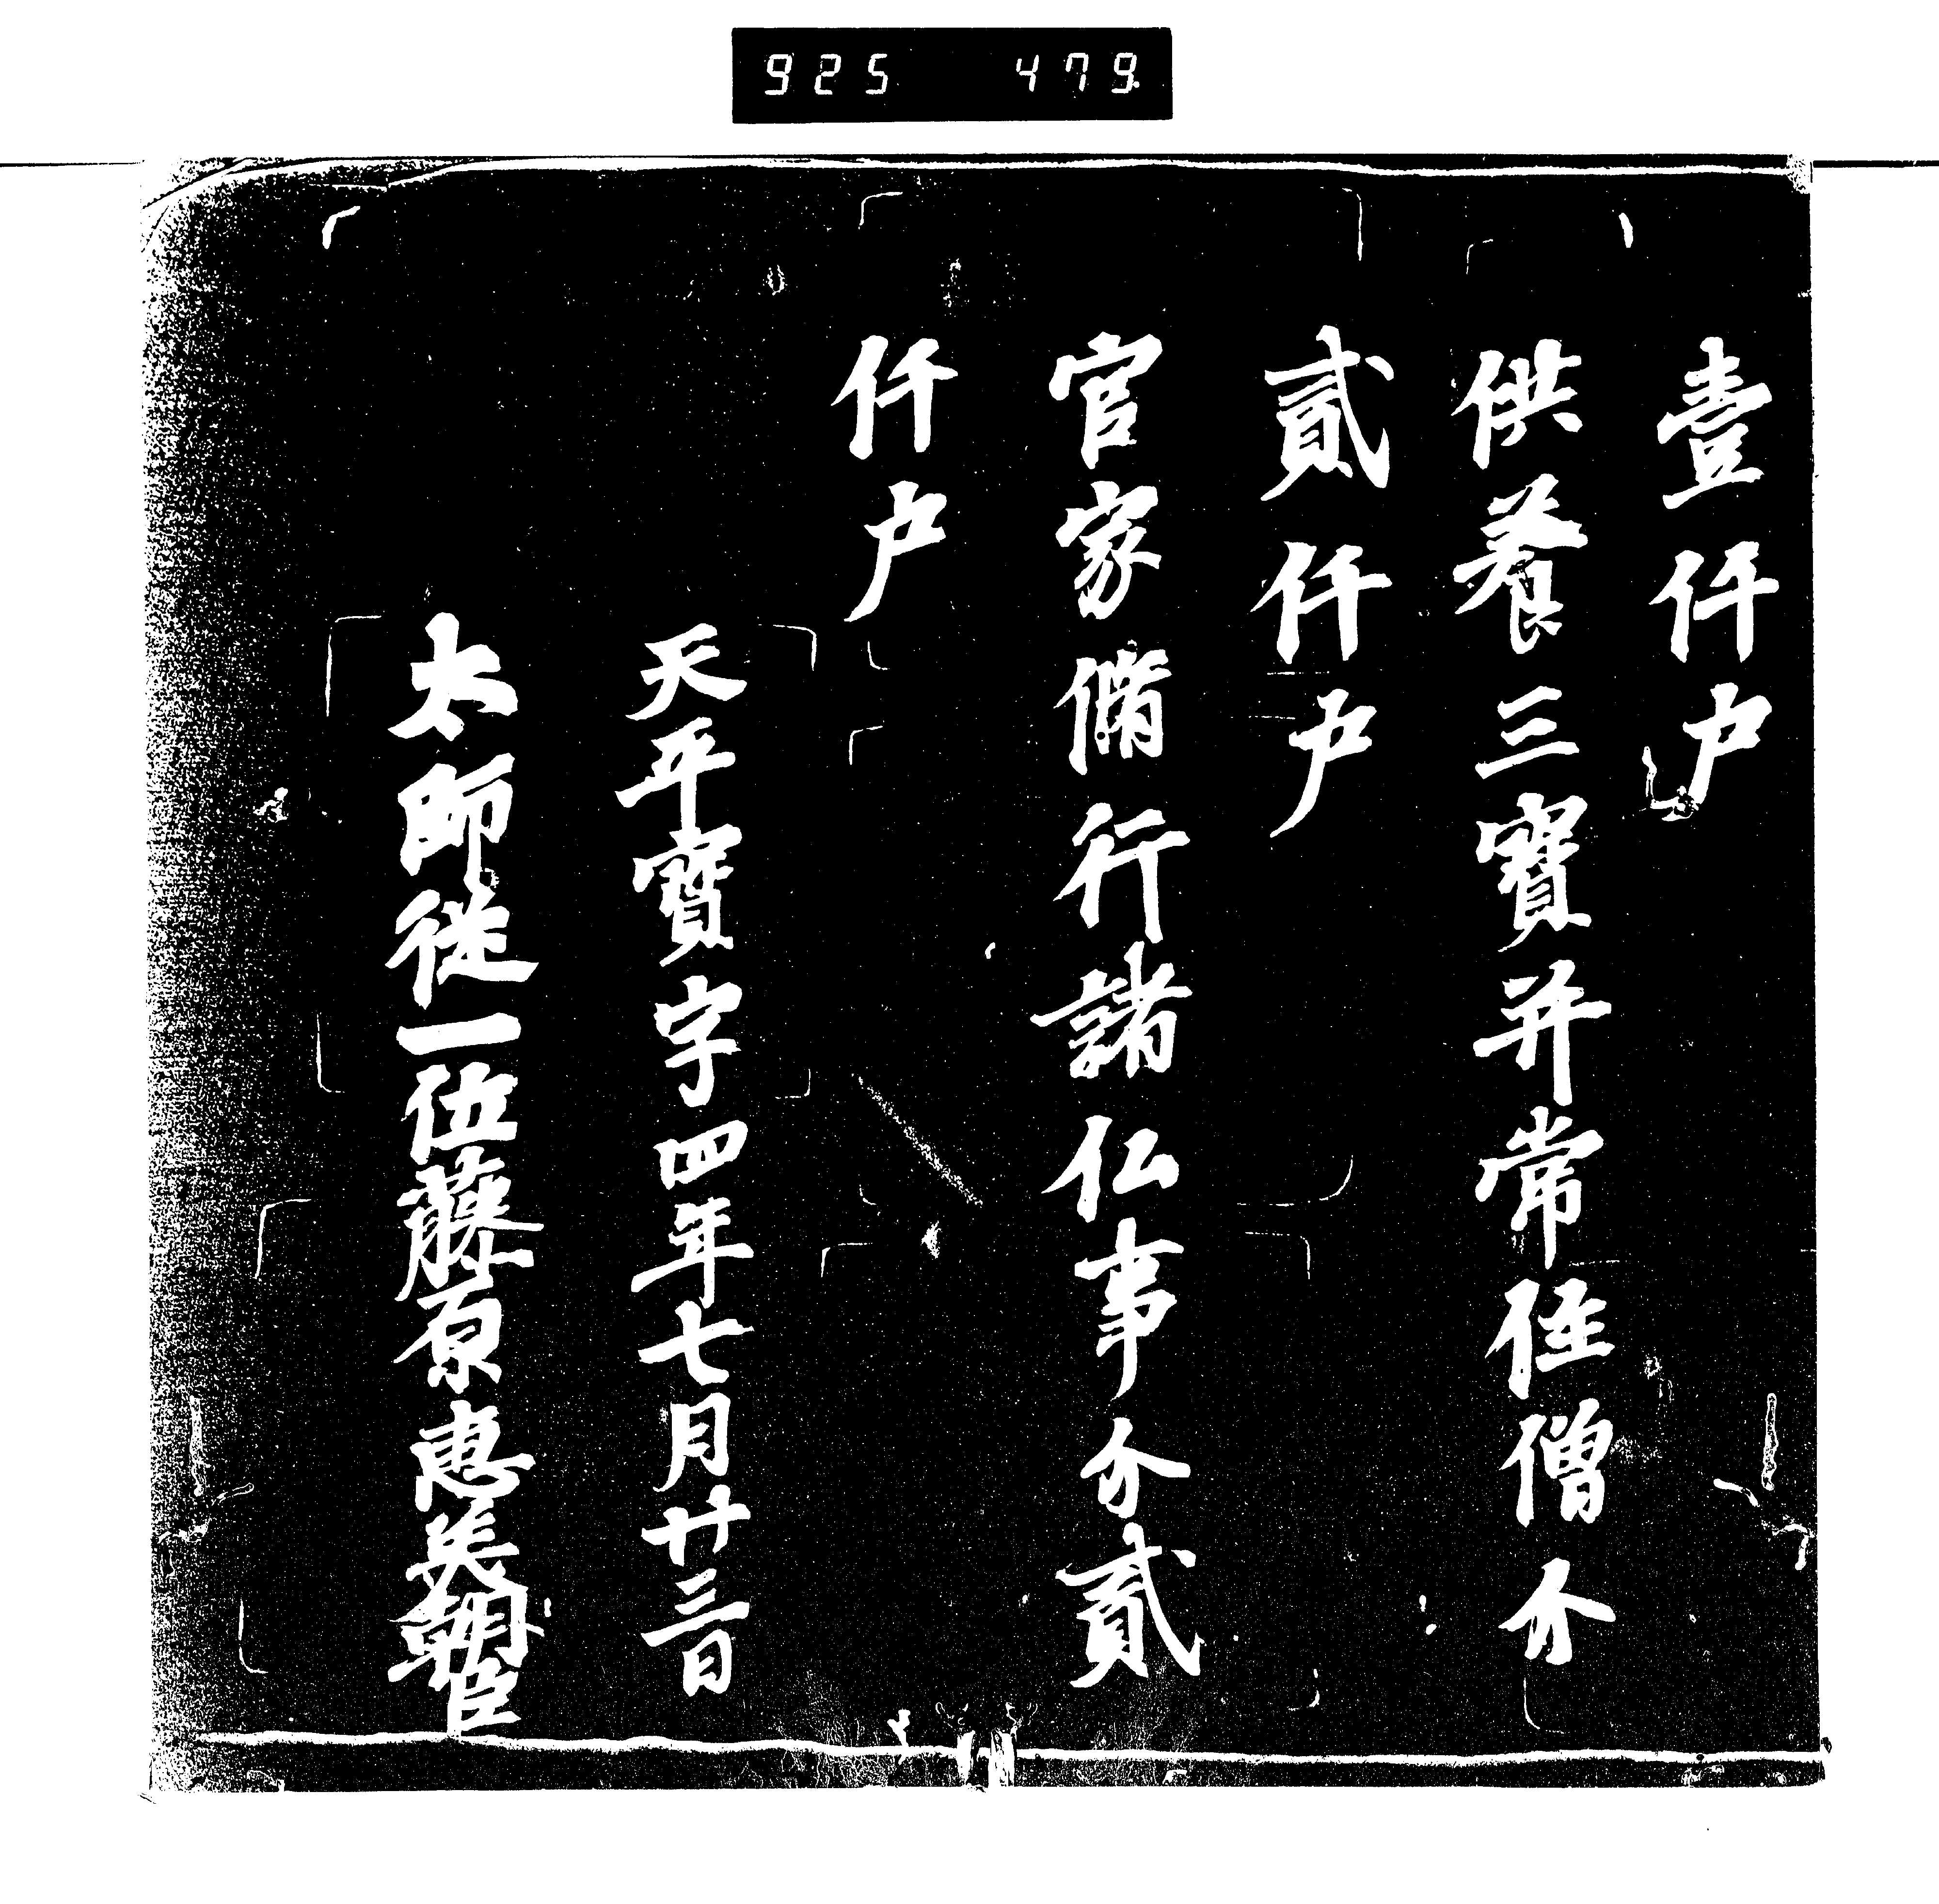 925 479
壹仟戸
供養三寳并常住僧分
貳仟戸
官家脩行諸仏事分貳
仟戸
天平寳字四年七月廿三日
太師従一位藤原恵美朝臣